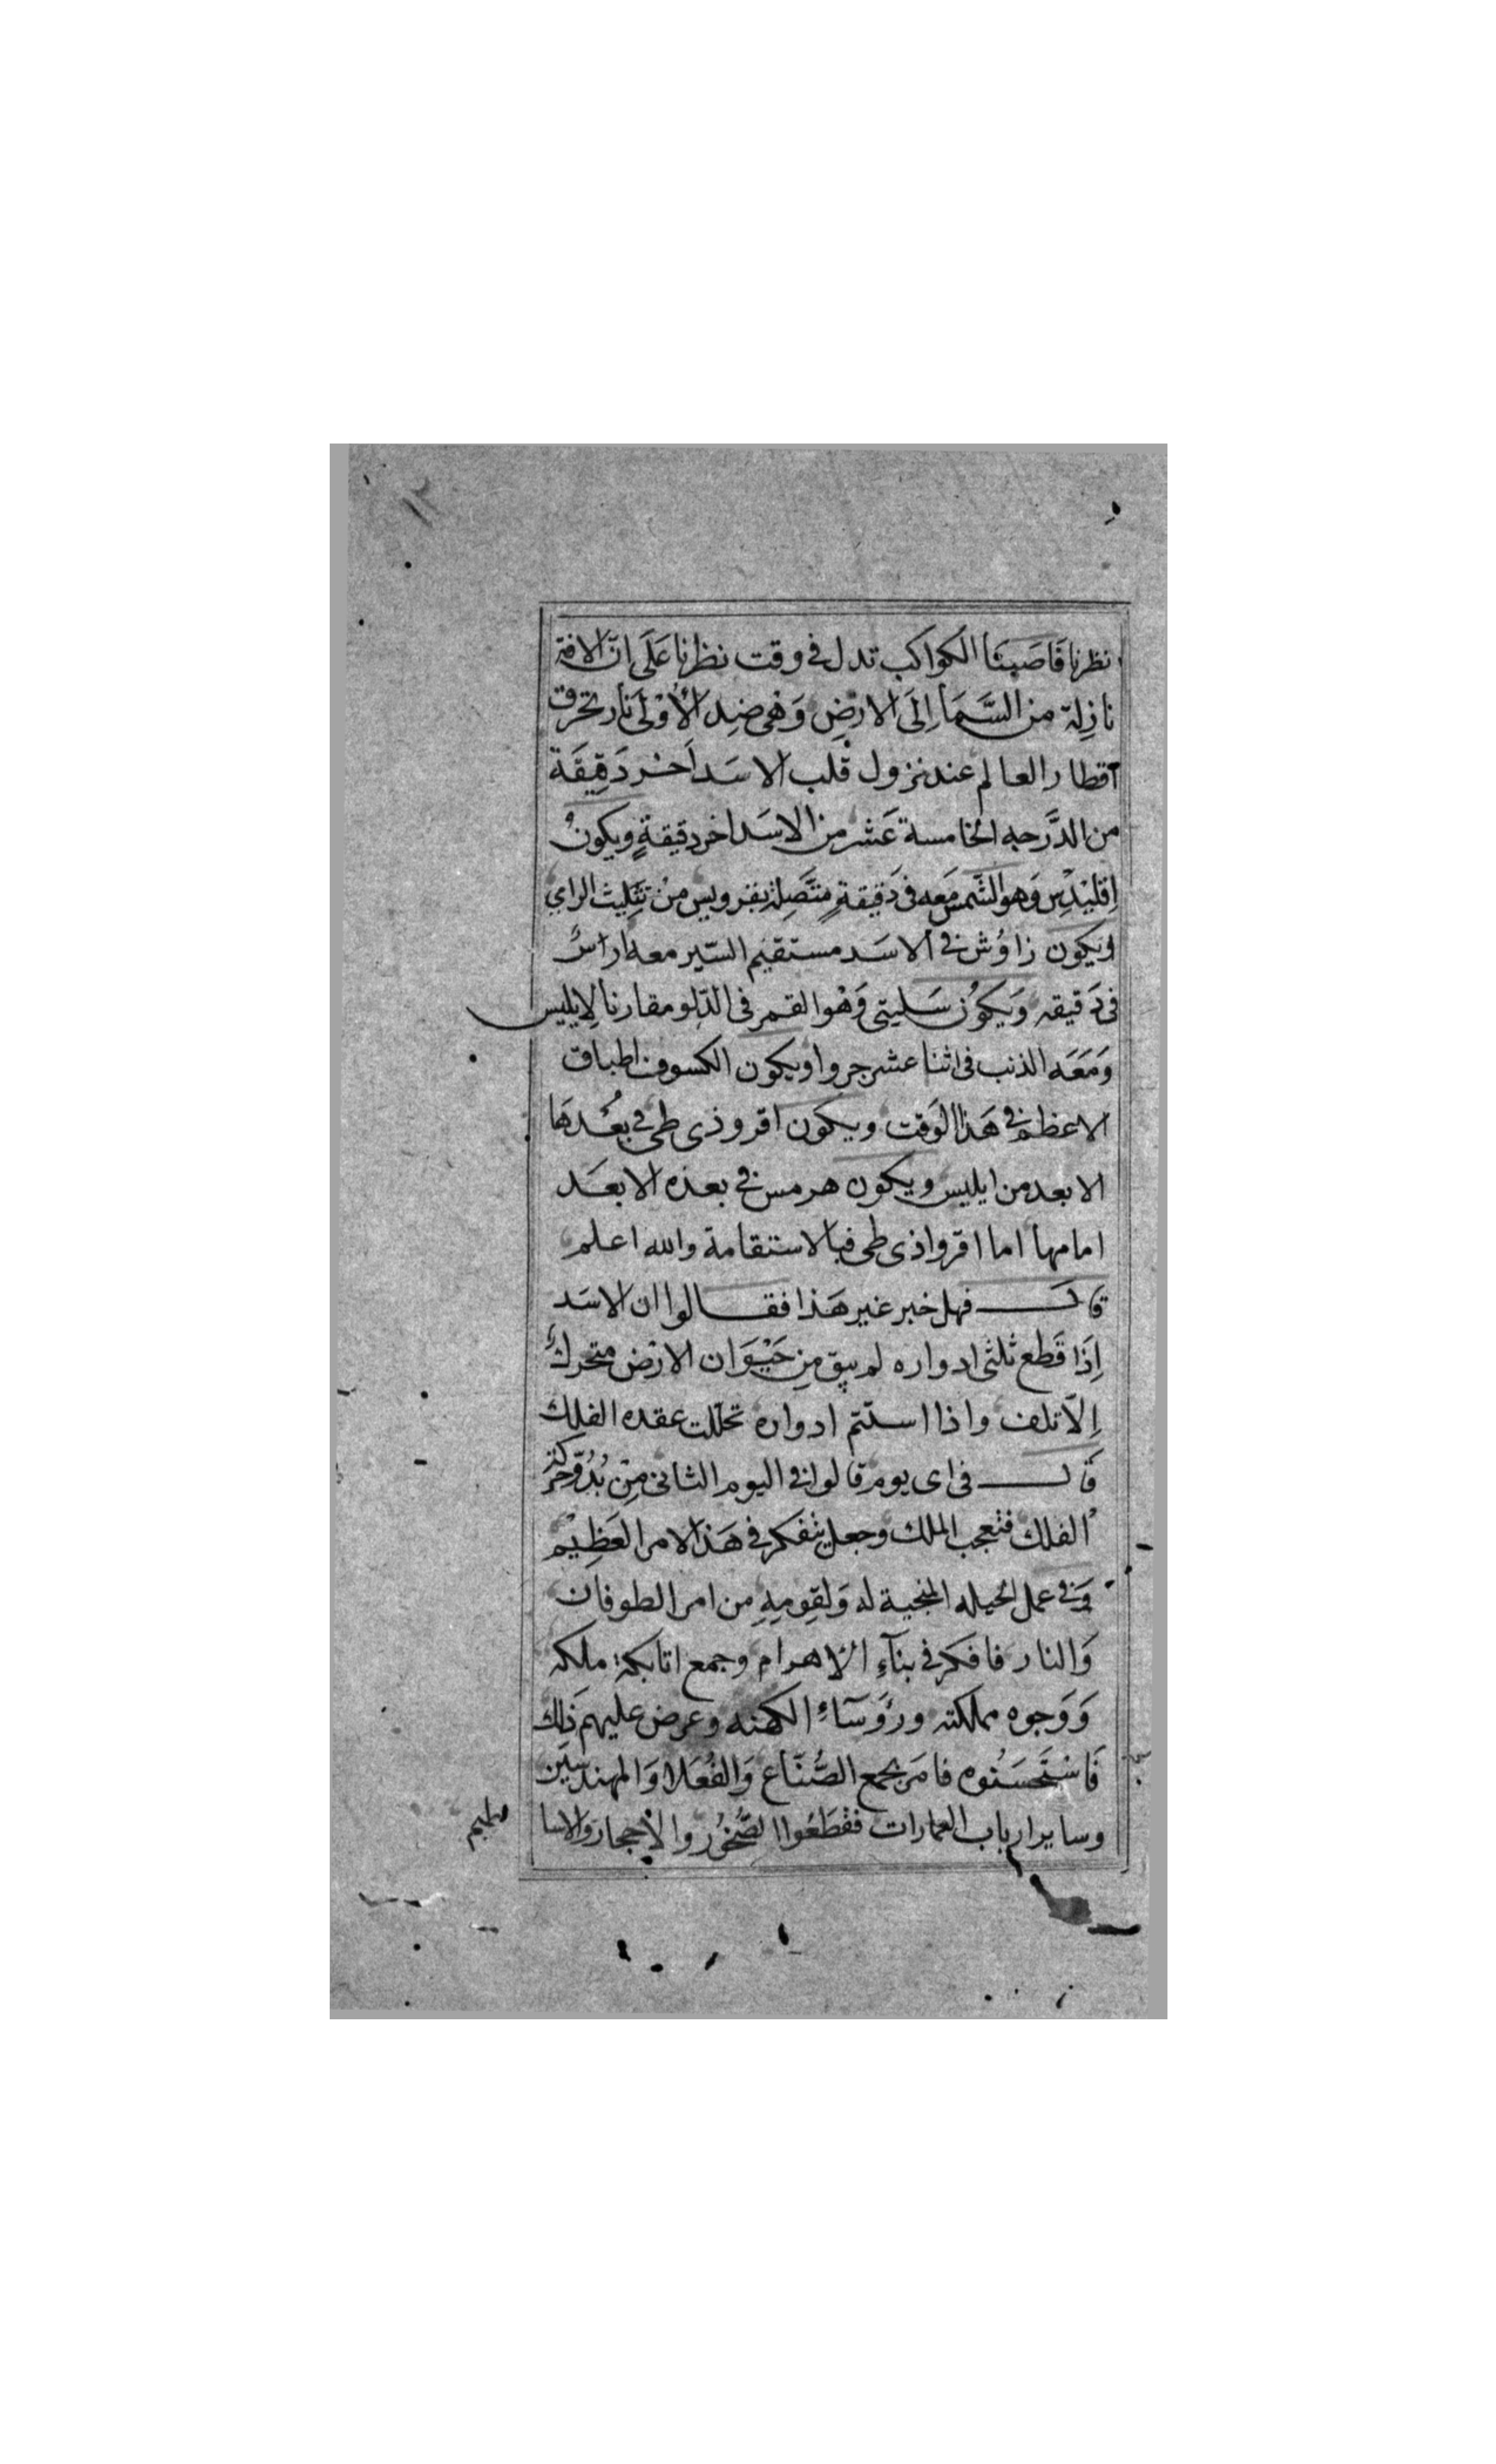 نظرنا فاصبنا الكواكب تدل في وقت نظرنا عَلَى انّ الافة
نازِلة من السَّمَا اِلَى الارضِ وَهى ضِد الأوْلى نار تحرق
اقطار العالم عند نزول قلب الاسَد اَخر دَقِيقَة
من الدَّرجه الخامسة عَشر من الاسَد اخر دقيقةٍ ويكونُ
اِقليْدِس وَهو الشّمس مَعه فى دَقيقةٍ متَّصِلة بقرويس منْ تثليث الراي
ويكون زاوُش فى الاسَد مستقيم السّير معه اراسُ
فى دَقيقه وَيكوُن سَليتى وَهْو القمر فى الدّلو مقارنا لِايليس
وَمَعَه الذنب فى اثنا عشر جروا ويكون الكسوف اطباق
الاعظم فى هَذا الوَقت ويكون اقروذى طى فى بعُدهَا
الابعد من ايليس ويكون هرمس فى بعده الابعَد
امامها اما اقرواذى طى فبالاستقامة والله اعلم
قال فهل خبر غير هَذا فقالوا ان الاسَد
اِذَا قَطع ثلثى ادواره لم يبق مِن حَيْوَان الارْض متحركٌ
اِلّا تلف واذا استتم ادواره تحلّلت عقده الفلك
قال فى اى يوم قالوا فى اليوم الثانى مِنْ بُدُوّ حركة
الفلك فتعجب الملك وجعل يتفكر فى هَذا الامر العَظِيْم
وَفى عمل الحيله المنجية له وَلقومِهِ من امر الطوفان
وَالنار فافكر فى بنآءِ الاهرام وجمع اتابكة ملكه
وَوَجوه مملكته ورؤَسَآءِ الكهنه وعرض عليهم ذٰلك
فَاسْتَحسَنُوه فامَر بجمع الصُّنّاع وَالفُعَلا وَالمهندسِين
وساير ارباب العمارات فقْطَعُوا الصُّخوُر والأحجار والاسا
طيم